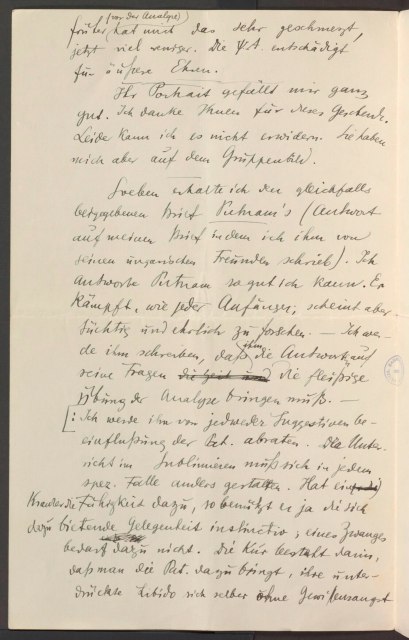 (vor der Analyse)
früher hat mich das sehr geschmerzt,
jetzt viel weniger. Die ΨA. entschädigt
für äußere Ehren.
Ihr Portrait gefällt mir ganz
gut. Ich danke Ihnen für dieses Geschenk.
Leider kann ich es nicht erwidern. Sie haben
mich aber auf dem Gruppenbild.
Soeben erhalte ich den gleichfalls
beigegebenen Brief Putnam's (Antwort
auf meinen Brief in dem ich ihm von
seinen ungarischen Freunden schrieb). Ich
antworte Putnam so gut ich kann. Er
kämpft, wie jeder Anfänger, scheint aber
tüchtig und ehrlich zu forschen. — Ich wer-
de ihm schreiben, daß ihm die Antwort auf
seine Fragen die fleißige
Übung der Analyse bringen muß. —
[: Ich werde ihm von jedweder Suggestiven be-
einflußung der Pat. abraten. Der Unter-
richt im Sublimieren muß sich in jedem
spez. Falle anders gestalten. Hat ein
Kranker die Fähigkeit dazu, so benützt er ja die sich
dazu bietende Gelegenheit instinctiv; eines Zwanges
bedarf dazu nicht. Die Kur besteht darin,
daß man die Pat. dazu bringt, ihre unter-
drückte Libido sich selber ohne Gewißensangst